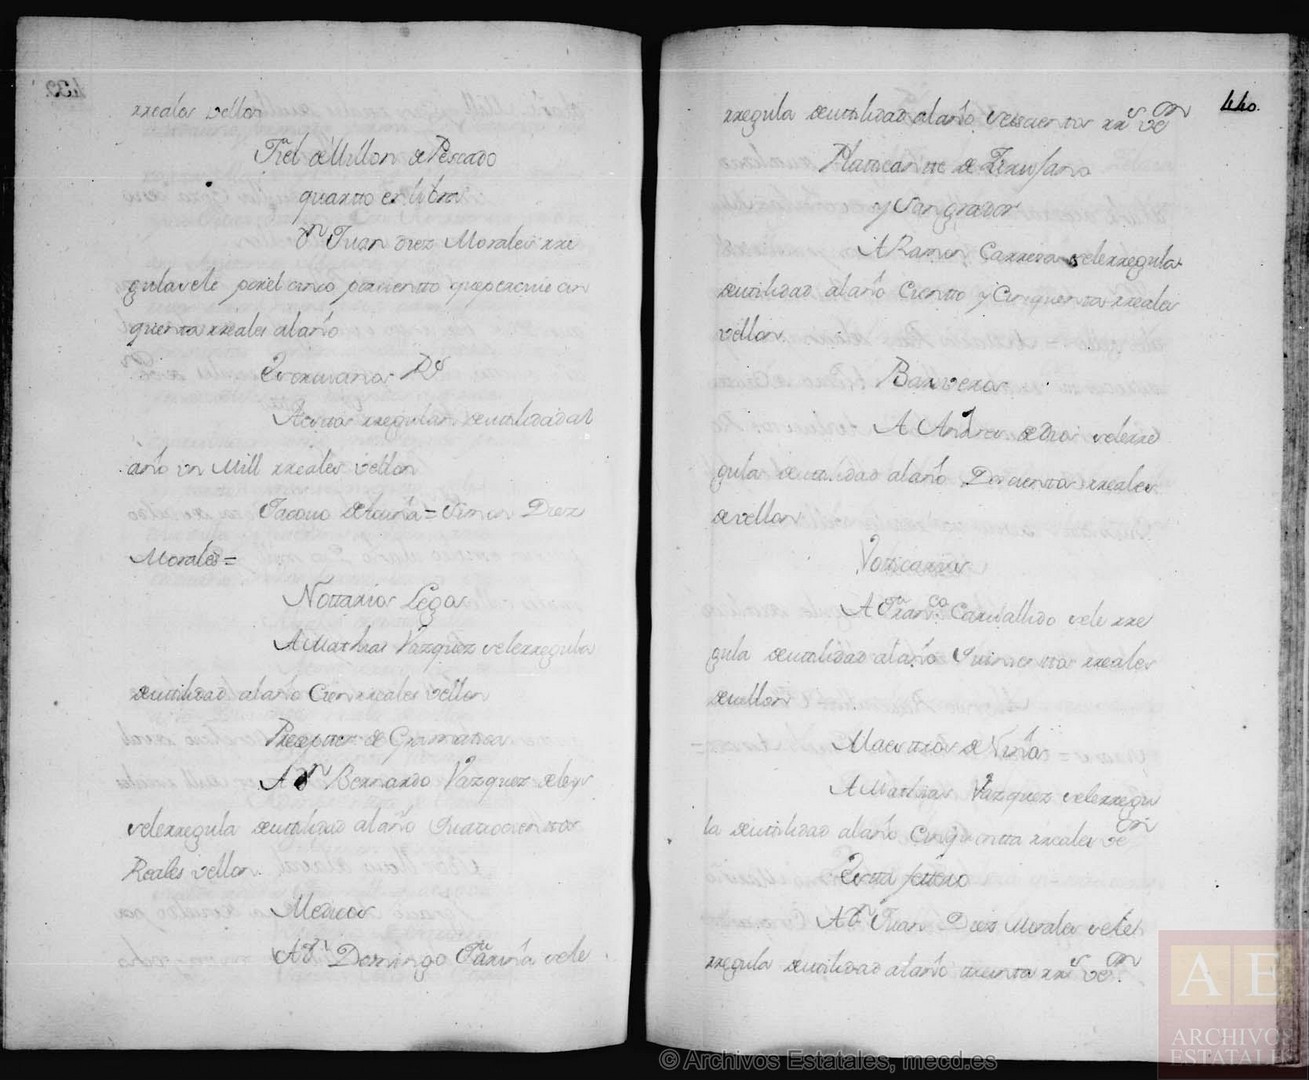 rreales vellon
Fiel de Millon de Pescado
quarto en libra
Dn Juan Diez Morales rre
gulasele por el cinco por ciento que percive cin
quenta rreales al año
Procuradores Rs
A estos rregulan de utilidad al
año un Mill rreales vellon
Jacovo = Simon Diez
Morales =
Nottarios Legos
A Mathias Vazquez se le rregula
de utilidad al año Cien rreales vellon
Preceptor de Gramatica
A Dn Bernardo Vazquez
se le rregula de utilidad al año Quatrocienttos
Reales vellon.
Medicos
A Dn Domingo Fariña se le
440.
rregula de utilidad al año rrs von
Platicantte de Zirujano
y Sangrador
A Ramon Carrera se le rregula
de utilidad al año Ciento y Cinquenta rreales
vellon.
Barveros
A Andres de Dios se le rre
gula de utilidad al año Doscientos rreales
de vellon
Votticarios
A Franco Carvallido se le rre
gula de utilidad al año Quinienttos rreales
de vellon
Maesttros de Niños
A Mathias Vazquez se le rregu
la de utilidad al año Cinquentta rreales von
A Dn Juan Diez Morales se le
rregula de utilidad al año treinta rrs von.
AE
ARCHIVOS
ESTATALES
© Archivos Estatales, mecd.es